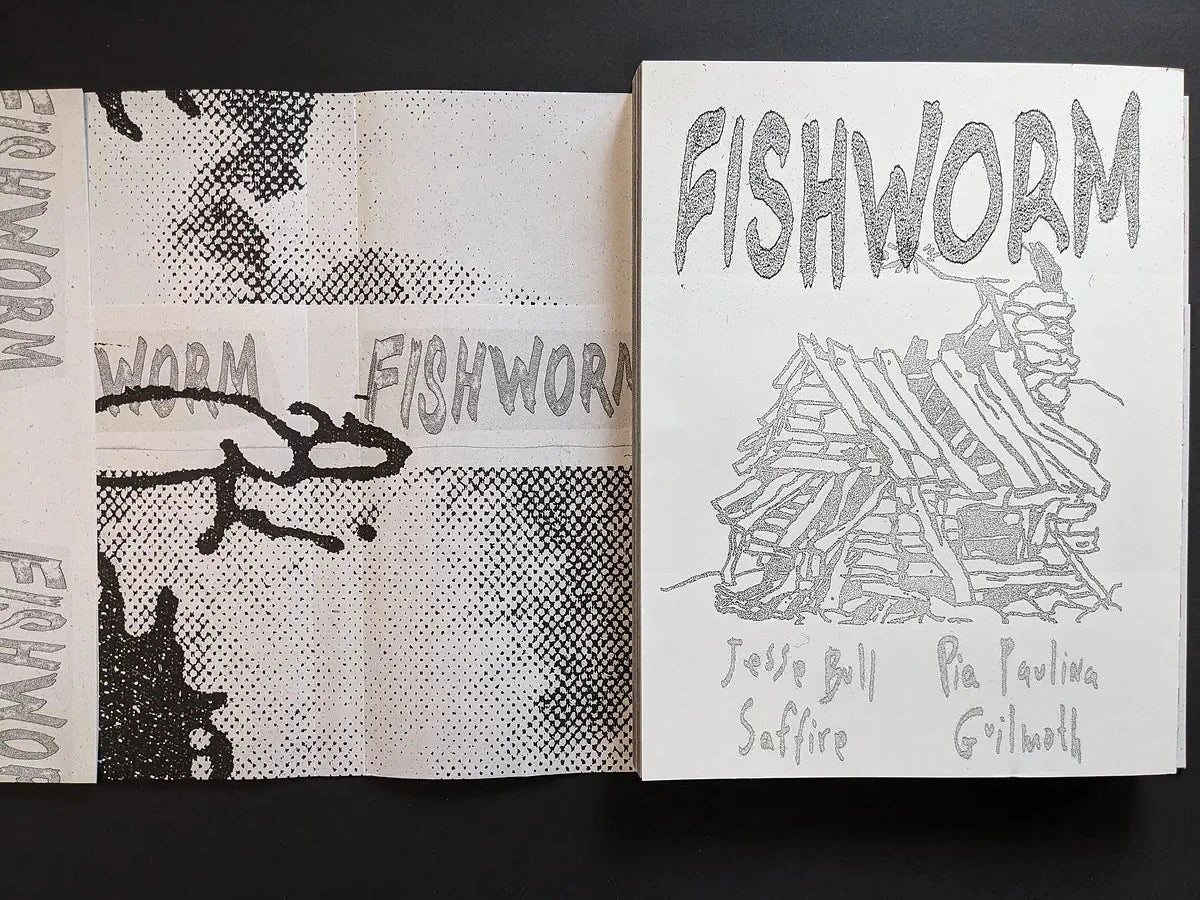 FISHWORM
FISHWORM
WORM
FISHWORM
FISHWORM
Jesse Bull
Saffire
Pia Paulina
Guilmoth